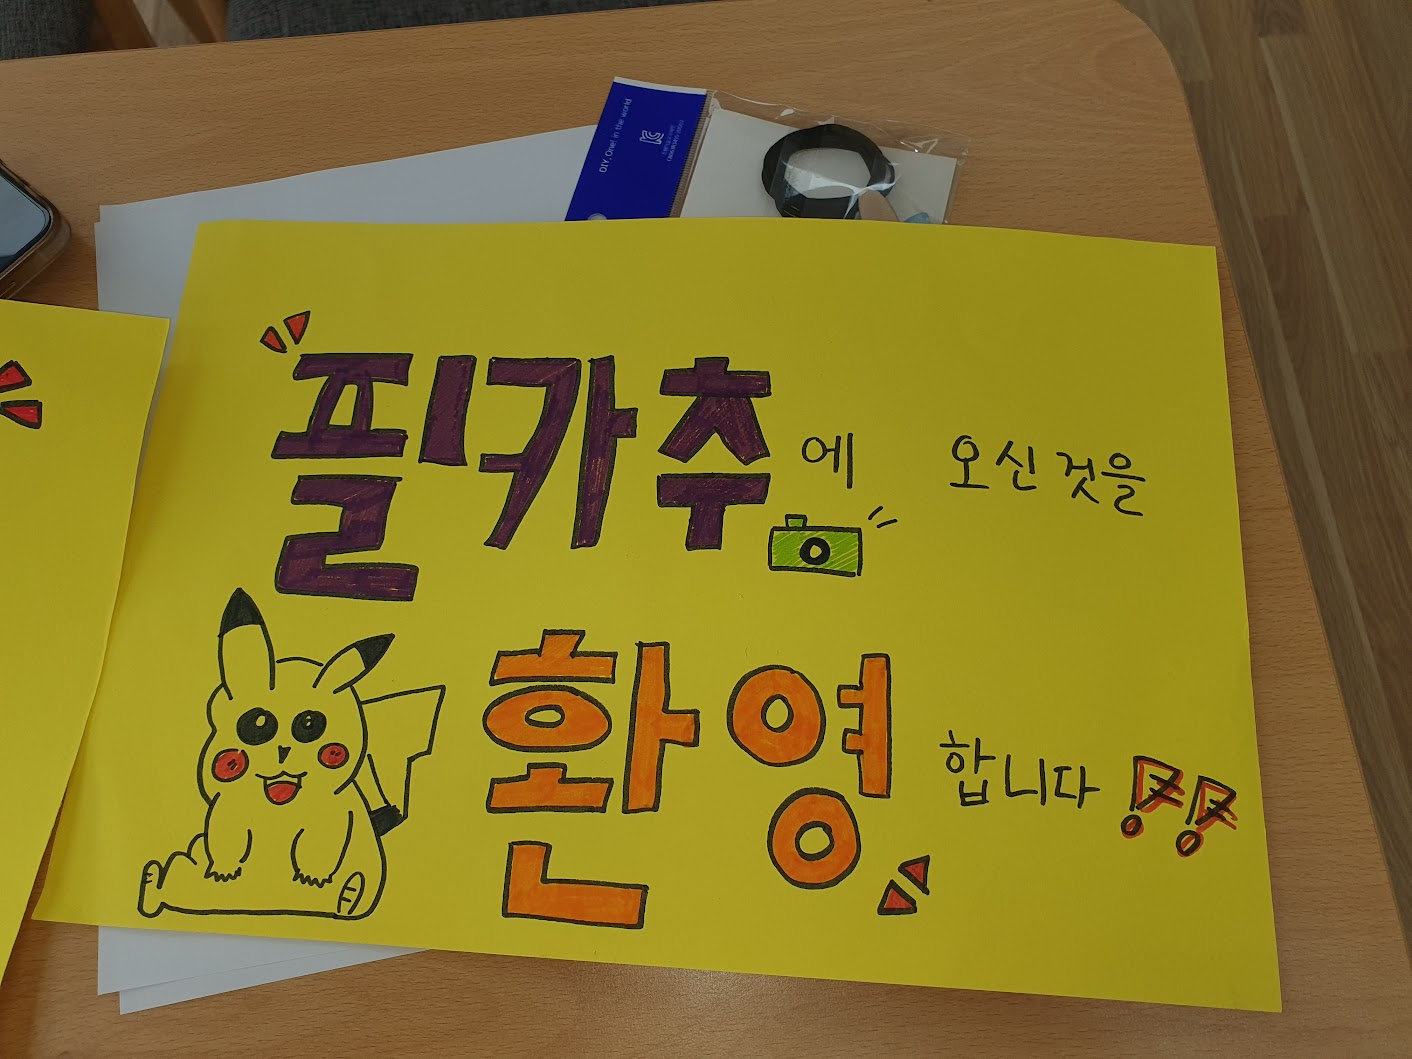 DIY. One! in the world
필카추에 오신것을
환영합니다!!